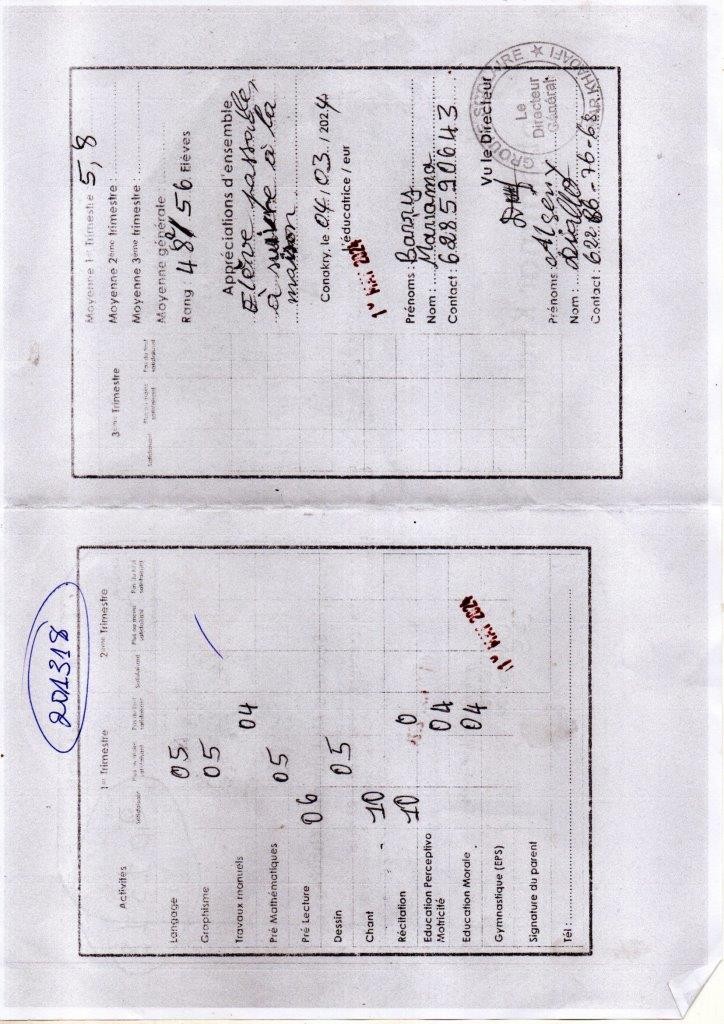 201318
Activités
1er Trimestre
2ème Trimestre
Satisfaisant
Plus ou moins satisfaisant
Pas du tout satisfaisant
Satisfaisant
Plus ou moins satisfaisant
Pas du tout satisfaisant
Langage 05
Graphisme 05
Travaux manuels 04
Pré Mathématiques 05
Pré Lecture 06
Dessin 05
Chant 10
Récitation 10
Education Perceptivo 04
Motticité
Education Morale 04
Gymnastique (EPS)
Signature du parent
Tél :
MAI 2024
3ème Trimestre
Satisfaisant
Plus ou moins satisfaisant
Pas du tout satisfaisant
Moyenne 1er Trimestre 5,8
Moyenne 2ème trimestre :
Moyenne 3ème trimestre :
Moyenne générale
Rang 48e/56 Elèves
Appréciations d'ensemble
Elève passable,
à suivre à la
maison
Conakry, le 04/03/2024
L'éducatrice / eur
MAI 2024
Prénoms : Barry
Nom : Mariama
Contact : 628590643
Vu le Directeur
GROUPE SCOLAIRE ★
KHADAFI
Le
Directeur
Général
Prénoms :
Nom : Diallo
Contact : 622-86-76-68